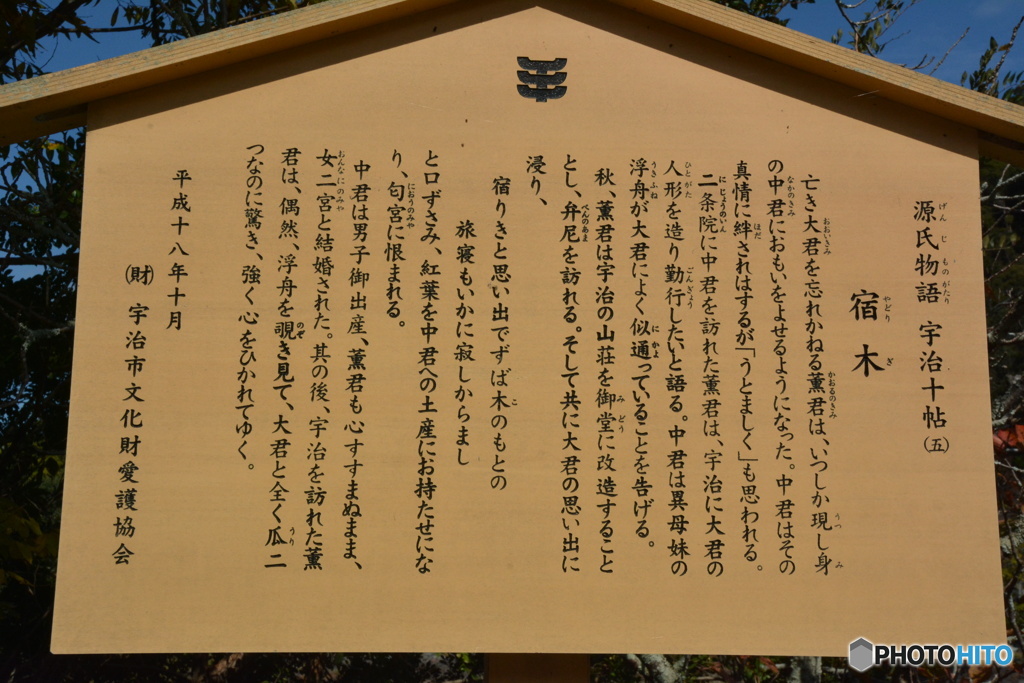 源氏物語 宇治十帖(五)
宿木
亡き大君を忘れかねる薫君は、いつしか現し身
の中君におもいをよせるようになった。中君はその
真情に絆されはするが「うとましく」も思われる。
二条院に中君を訪れた薫君は、宇治に大君の
人形を造り勤行したいと語る。中君は異母妹の
浮舟が大君によく似通っていることを告げる。
秋、薫君は宇治の山荘を御堂に改造すること
とし、弁尼を訪れる。そして共に大君の思い出に
浸り、
宿りきと思い出でずば木のもとの
旅寝もいかに寂しからまし
と口ずさみ、紅葉を中君への土産にお持たせにな
り、匂宮に恨まれる。
中君は男子御出産、薫君も心すすまぬまま、
女二宮と結婚された。其の後、宇治を訪れた薫
君は、偶然、浮舟を覗き見て、大君と全く瓜二
つなのに驚き、強く心をひかれてゆく。
平成十八年十月
(財)宇治市文化財愛護協会
PHOTOHITO